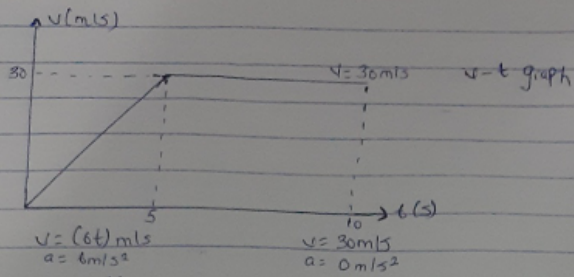 v(m/s)
30
v=30m/s
v-t graph
5
10
t(s)
v=(6t) m/s
a= 6m/s²
v= 30m/s
a= 0m/s²